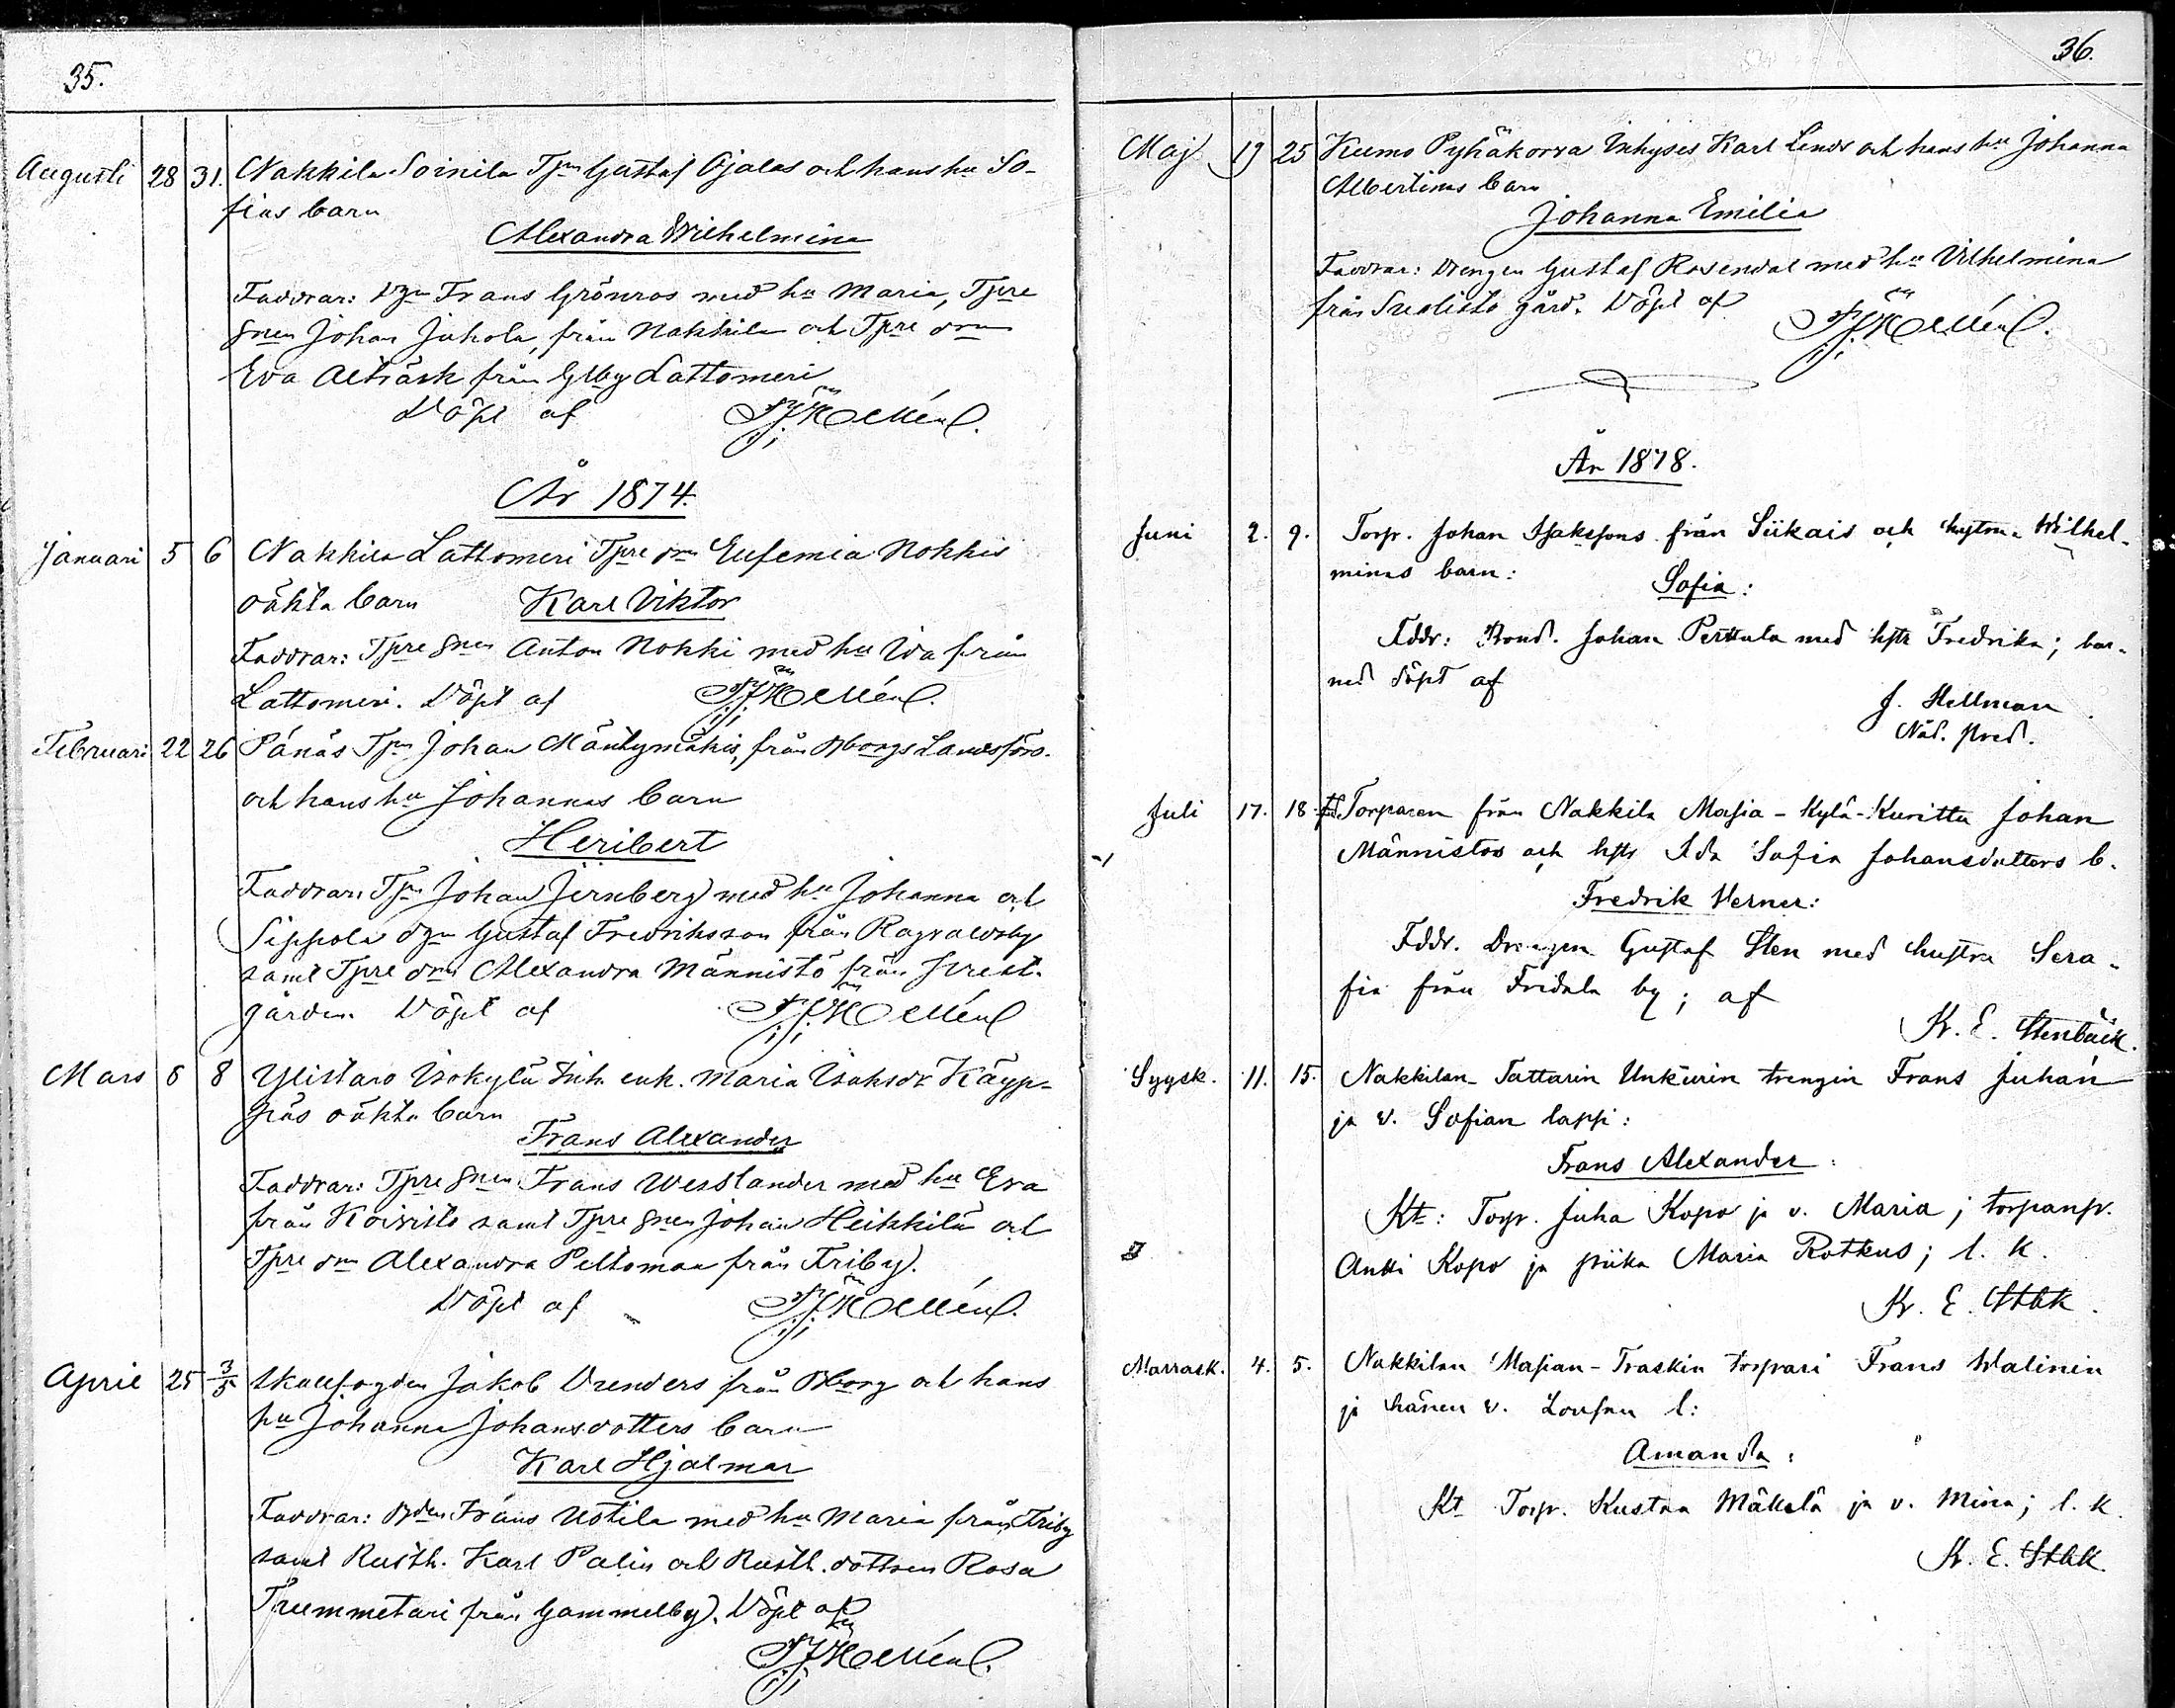 35.
Augusti 28 31. Nakkila Soinila Tpn Gustaf Ojalas och hans hu So-
fias barn
Alexandra Wilhelmina
Faddrar: Dgn Frans Grönroos med hu Maria, Tpre
snen Johan Juhola, från Nakkila och Tpre drn
Eva Aeträsk från Glby Lattomeri
Döpt af
År 1874.
Januari 5 6 Nakkila Lattomeri Tpre drn Eufemia Nokkis
oäkta barn Karl Viktor
Faddrar: Tpre snen Anton Nokki med hu Ida från
Lattomeri. Döpt af
Februari 22 26 Pänäs Tpn Johan Mäntymäkis, från Bborgs Landsförs.
och hans hu Johannas barn
Heribert
Faddrar: Tpn Johan Jernberg med hu Johanna och
Sippola dgn Gustaf Fredriksson från Ragvaldsby
samt Tpre drn Alexandra Männistö från
gården. Döpt af
Mars 6 8 Ylistaro Isokylä Inh. enk. Maria Isaksdr Käyp-
päs oäkta barn
Frans Alexander
Faddrar: Tpre snen Frans Westlander med hu Eva
från Koivisto samt Tpre snen Johan Heikkilä och
Tpre drn Alexandra Peltomaa från Friby.
Döpt af
April 25 3/5 Skallfogden Jakob Drenders från Bborg och hans
hu Johanna Johansdotters barn
Karl Hjalmar
Faddrar: Bden Frans Uotila med hu Maria från Friby
samt Rusth. Karl Palin och Rusth. dottren Rosa
Trummetari från Gammelby. Döpt af
36.
Maj 19 25 Kumo Pyhäkorva Inhyses Karl Linds och hans hu Johanna
Albertinas barn
Johanna Emilia
Faddrar: Drengen Gustaf Rosendal med hu Vilhelmina
från Suolisto gård. Döpt af
År 1878.
Juni 2. 9. Torp. Johan Isakssons från Siikais och hustru Wilhel-
minas barn:
Sofia:
Fddr: Bond. Johan Perttula med hstr Fredrika; bar-
net döpt af
J. Hellman
Nåd. pred.
Juli 17. 18. Torparen från Nakkila Masia-Kylä-Kuritta Johan
Männistös och hstr Ida Sofia Johansdotters b.
Fredrik Verner:
Fddr. Drengen Gustaf Sten med hustru Sera-
fia från Fridala by; af
K. E. Stenbäck.
Syysk. 11. 15. Nakkilan Tattarin Unkurin trengin Frans Juhan
ja v. Sofian lapsi:
Frans Alexander:
Kt: Torp. Juha Kopo ja v. Maria; torpanp.
Antti Kopo ja piika Maria Rotkus; l. k.
K. E. Stbk.
Marrask. 4. 5. Nakkilan Masian-Traskin torpari Frans Walinin
ja hänen v. Lovisan l:
Amanda:
Kt Torp. Kustaa Mäkelä ja v. Mina; l. k.
K. E. Stbk.